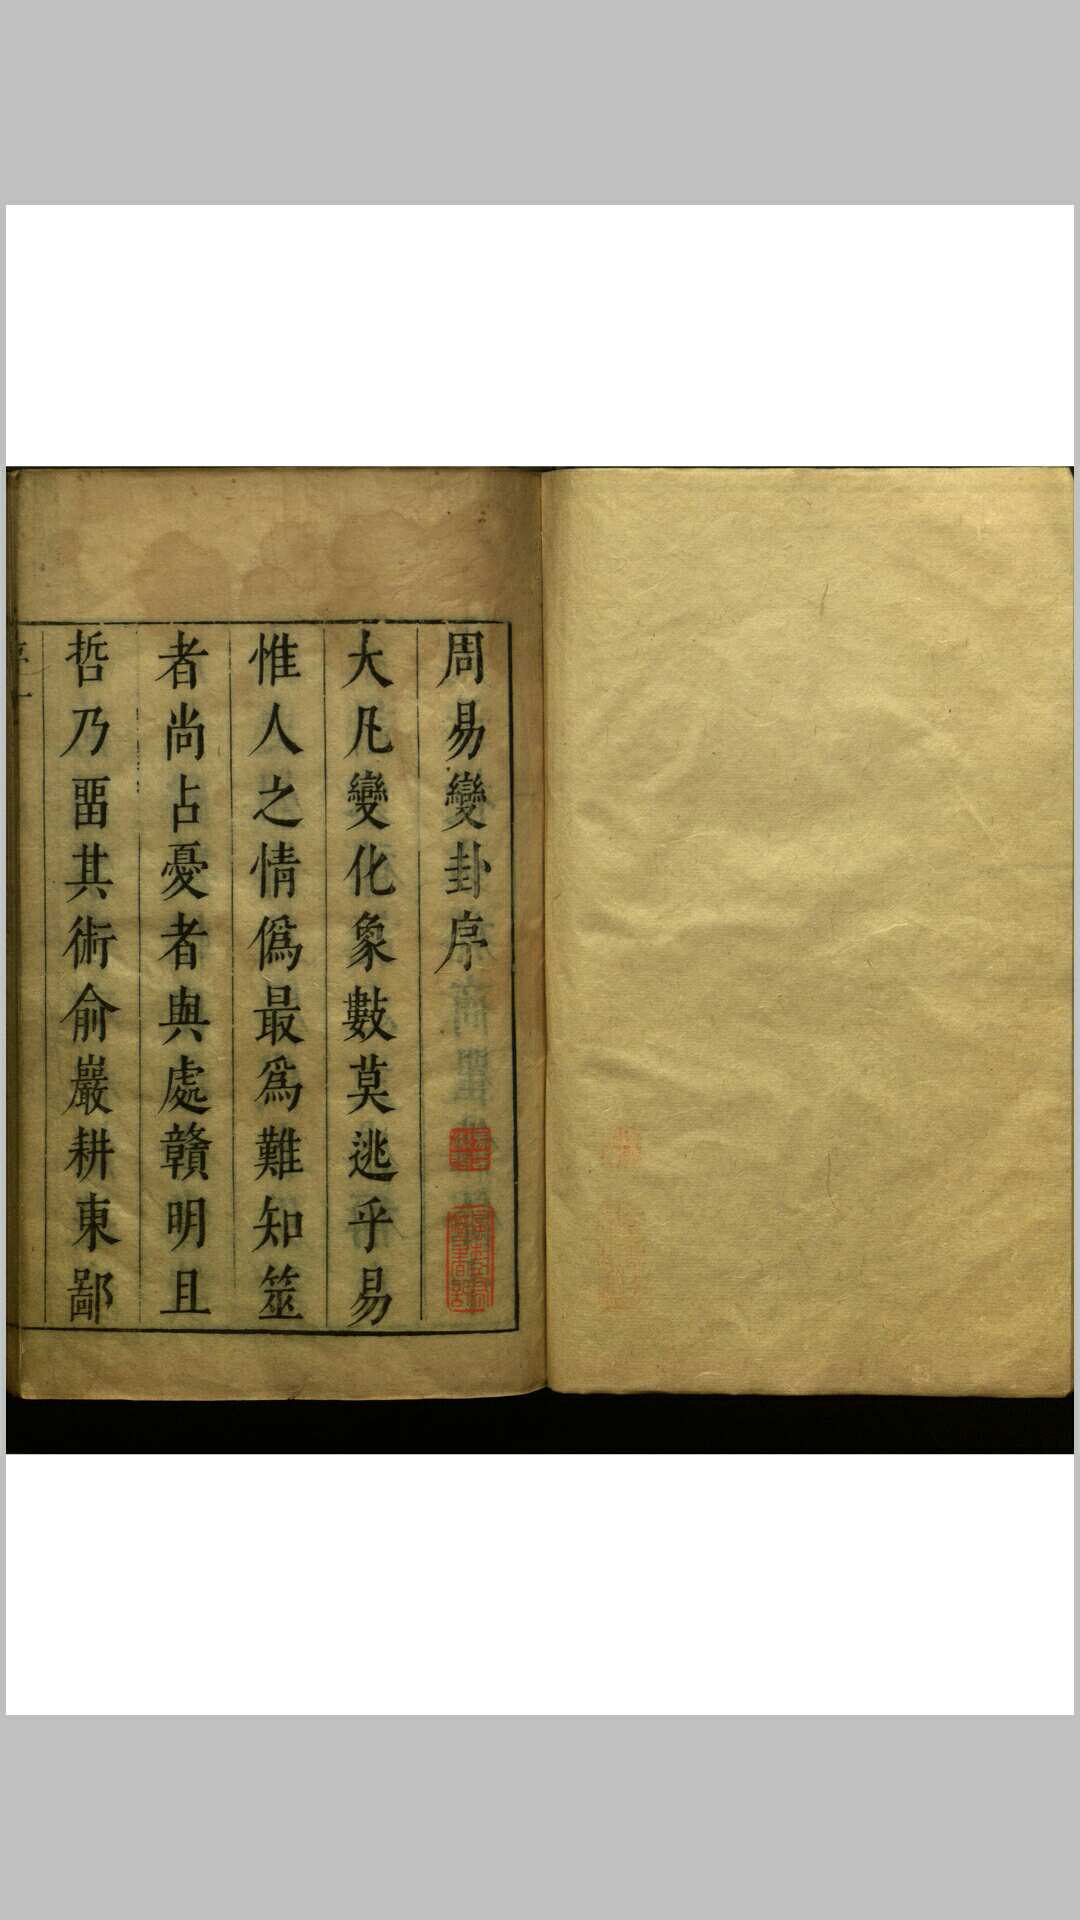 周易變卦序
大凡變化象數莫逃乎易
惟人之情僞最爲難知筮
者尚占憂者與處贛明且
哲乃畱其術俞巖耕東鄙